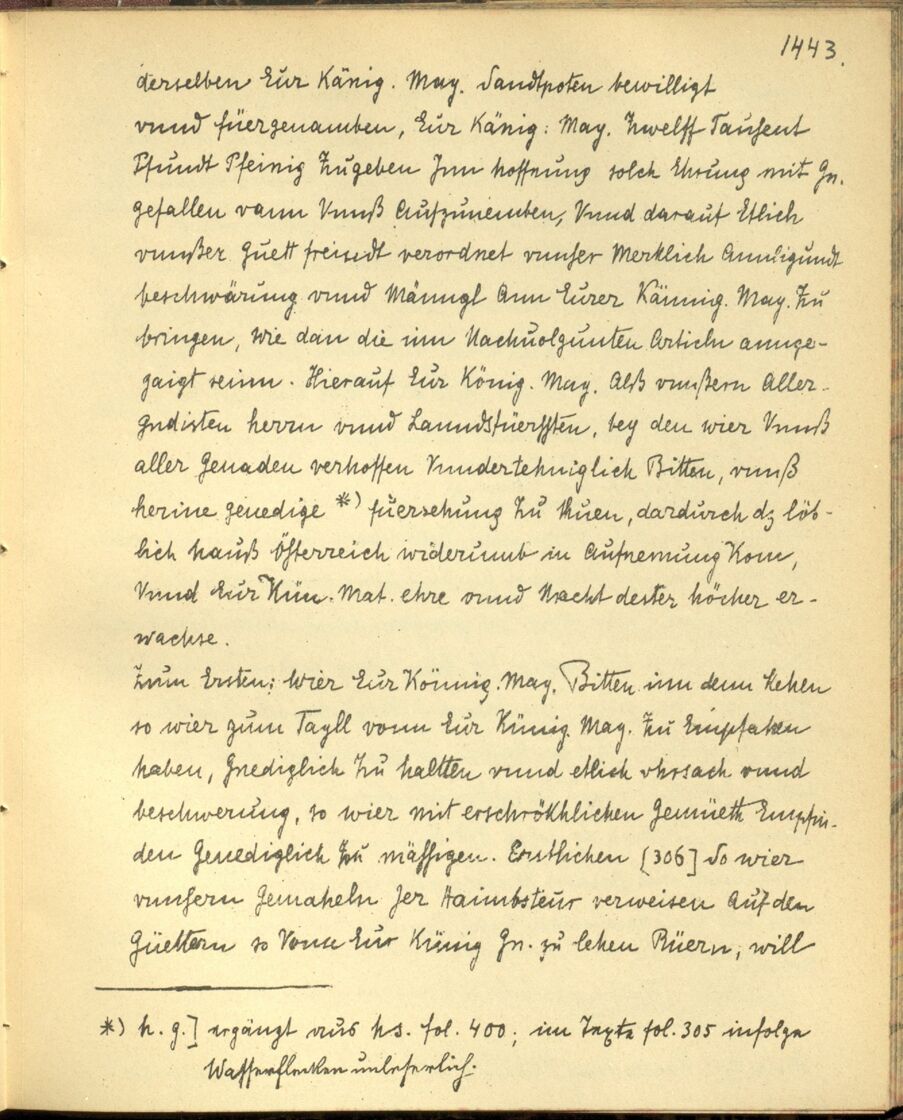 1443.
derselben Eur Känig. May. Sandtpoten bewilligt
vnnd füergenamben, Eur Känig: May. Zwelff Tausent
Pfundt Pfeinig Zugeben Jnn hoffnung solch Ehrung mit Gn.
gefallen vann Vnnß Aufzunemben, Vnnd darauf Etlich
vnnßer Guett freundt verordnet vnnser Merklich Annligundt
beschwärung vnnd Männgl Ann Eurer Kännig. May. Zu
bringen, wie dan die inn Nachuolgunten Articln annge-
zaigt seinn. Hierauf Eur König. May. Alß vnnßern Aller-
gndisten herrn vnnd Lanndsfüerssten, bey den wier Vnnß
aller Genaden verhoffen Vnndertehniglich Bitten, vnnß
herine genedige *) füersehung Zu thuen, dardurch dz löb-
lich hauß Össterreich widerumb in Aufnemung Kom,
Vnnd Eur Kün. Mat. ehre vnnd Macht dester höcher er-
wachse.
Zum Ersten: Wier Eur Könnig. May. Bitten inn denn Lehen
so wier zum Tayll vonn Eur Künig May. Zu Empfahen
haben, Gnediglich Zu haltten vnnd etlich vhrsach vnnd
beschwerung, so wier mit erschrökhlichen Gemüeth Empfin-
den Genediglich Zu mässigen. Erstlichen [306] So wier
vnnsern Gemaheln Jer Haimbsteur verweisen Auf den
Güettern so Vonn Eur Künig Gn. zu lehen Rüern, will
*) h. g.] ergänzt aus hs. fol. 400; im Texte fol. 305 infolge
Wasserflecken unleserlich.